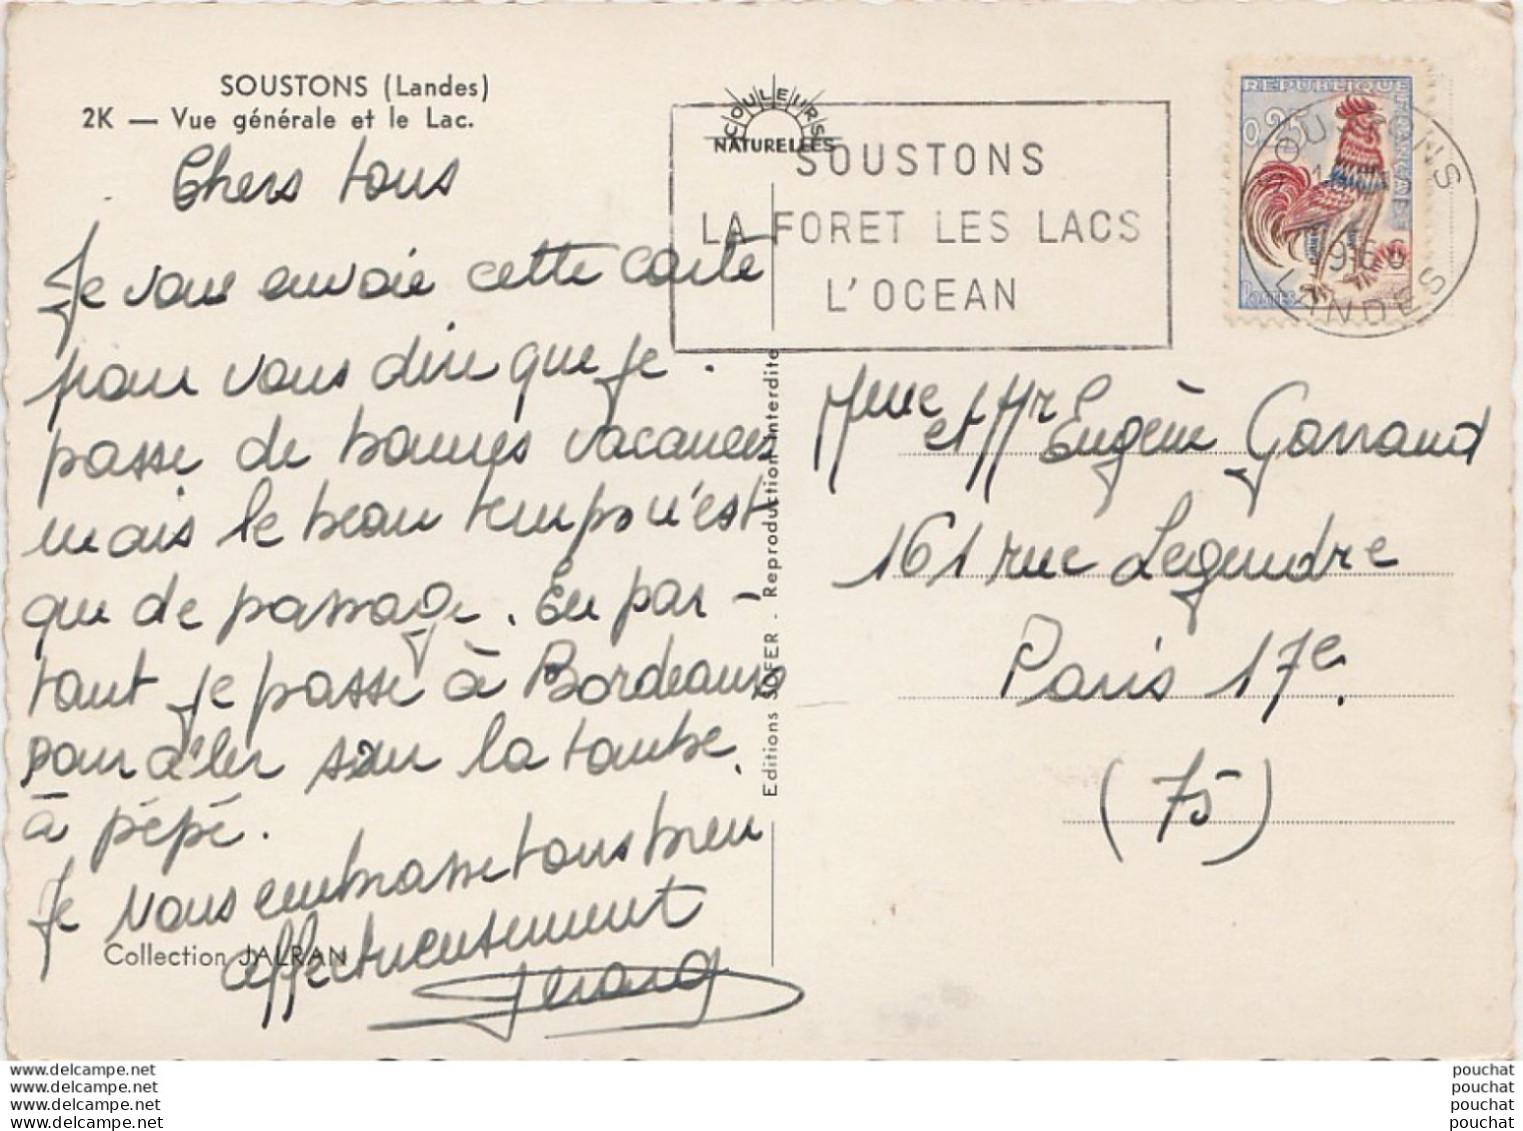 SOUSTONS (Landes)
2K — Vue générale et le Lac.
Chers tous
Je vous envoie cette carte
pour vous dire que je
passe de bonnes vacances
mais le beau temps n'est
que de passage. En par-
tant je passe à Bordeaux
pour aller sur la tombe
à pépé.
Je vous embrasse tous bien
affectueusement
Gérard
Collection JALRAN
COULEURS
NATURELLES
Editions SOFER . Reproduction interdite
SOUSTONS
LA FORET LES LACS
L'OCEAN
REPUBLIQUE FRANCAISE
0,25
POSTES
SOUSTONS
1966
LANDES
Mme et Mr Eugène Garraud
161 rue Legendre
Paris 17e.
(75)
www.delcampe.net
www.delcampe.net
www.delcampe.net
www.delcampe.net
pouchat
pouchat
pouchat
pouchat